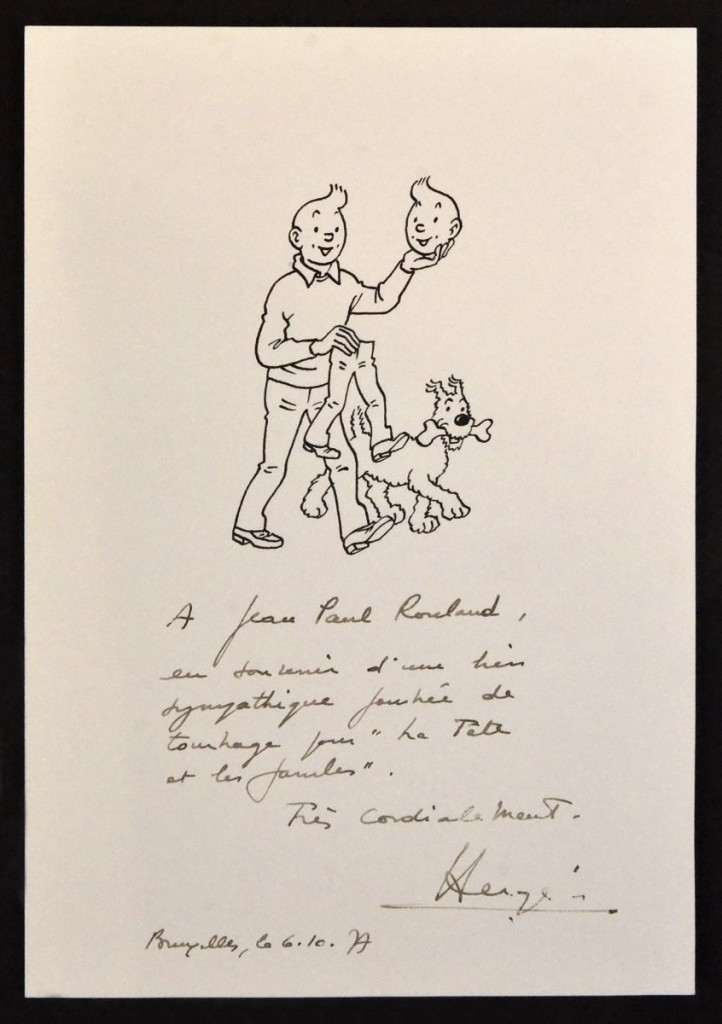 A Jean Paul Rouland,
en souvenir d'une très
sympathique journée de
tournage pour "La Tête
et les Jambes".
Très Cordialement.
Hergé
Bruxelles, le 6.10.